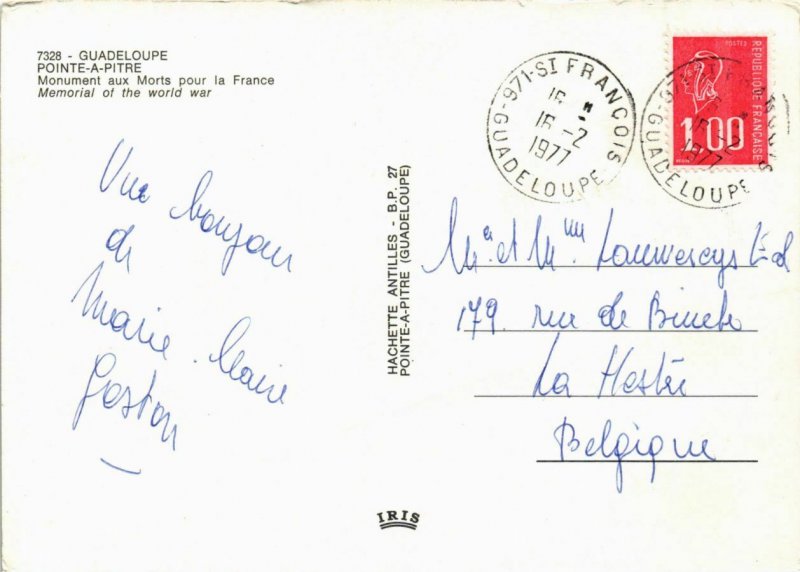 7328 - GUADELOUPE
POINTE-A-PITRE
Monument aux Morts pour la France
Memorial of the world war
971-ST FRANCOIS
16
16-2
1977
GUADELOUPE
POSTES
REPUBLIQUE FRANÇAISE
1.00
971
1977
GUADELOUPE
bonjour
de
Marie-Claire
Gaston
HACHETTE ANTILLES - B.P. 27
POINTE-A-PITRE (GUADELOUPE)
et
179. rue de Binche
La Hestre
Belgique
IRIS